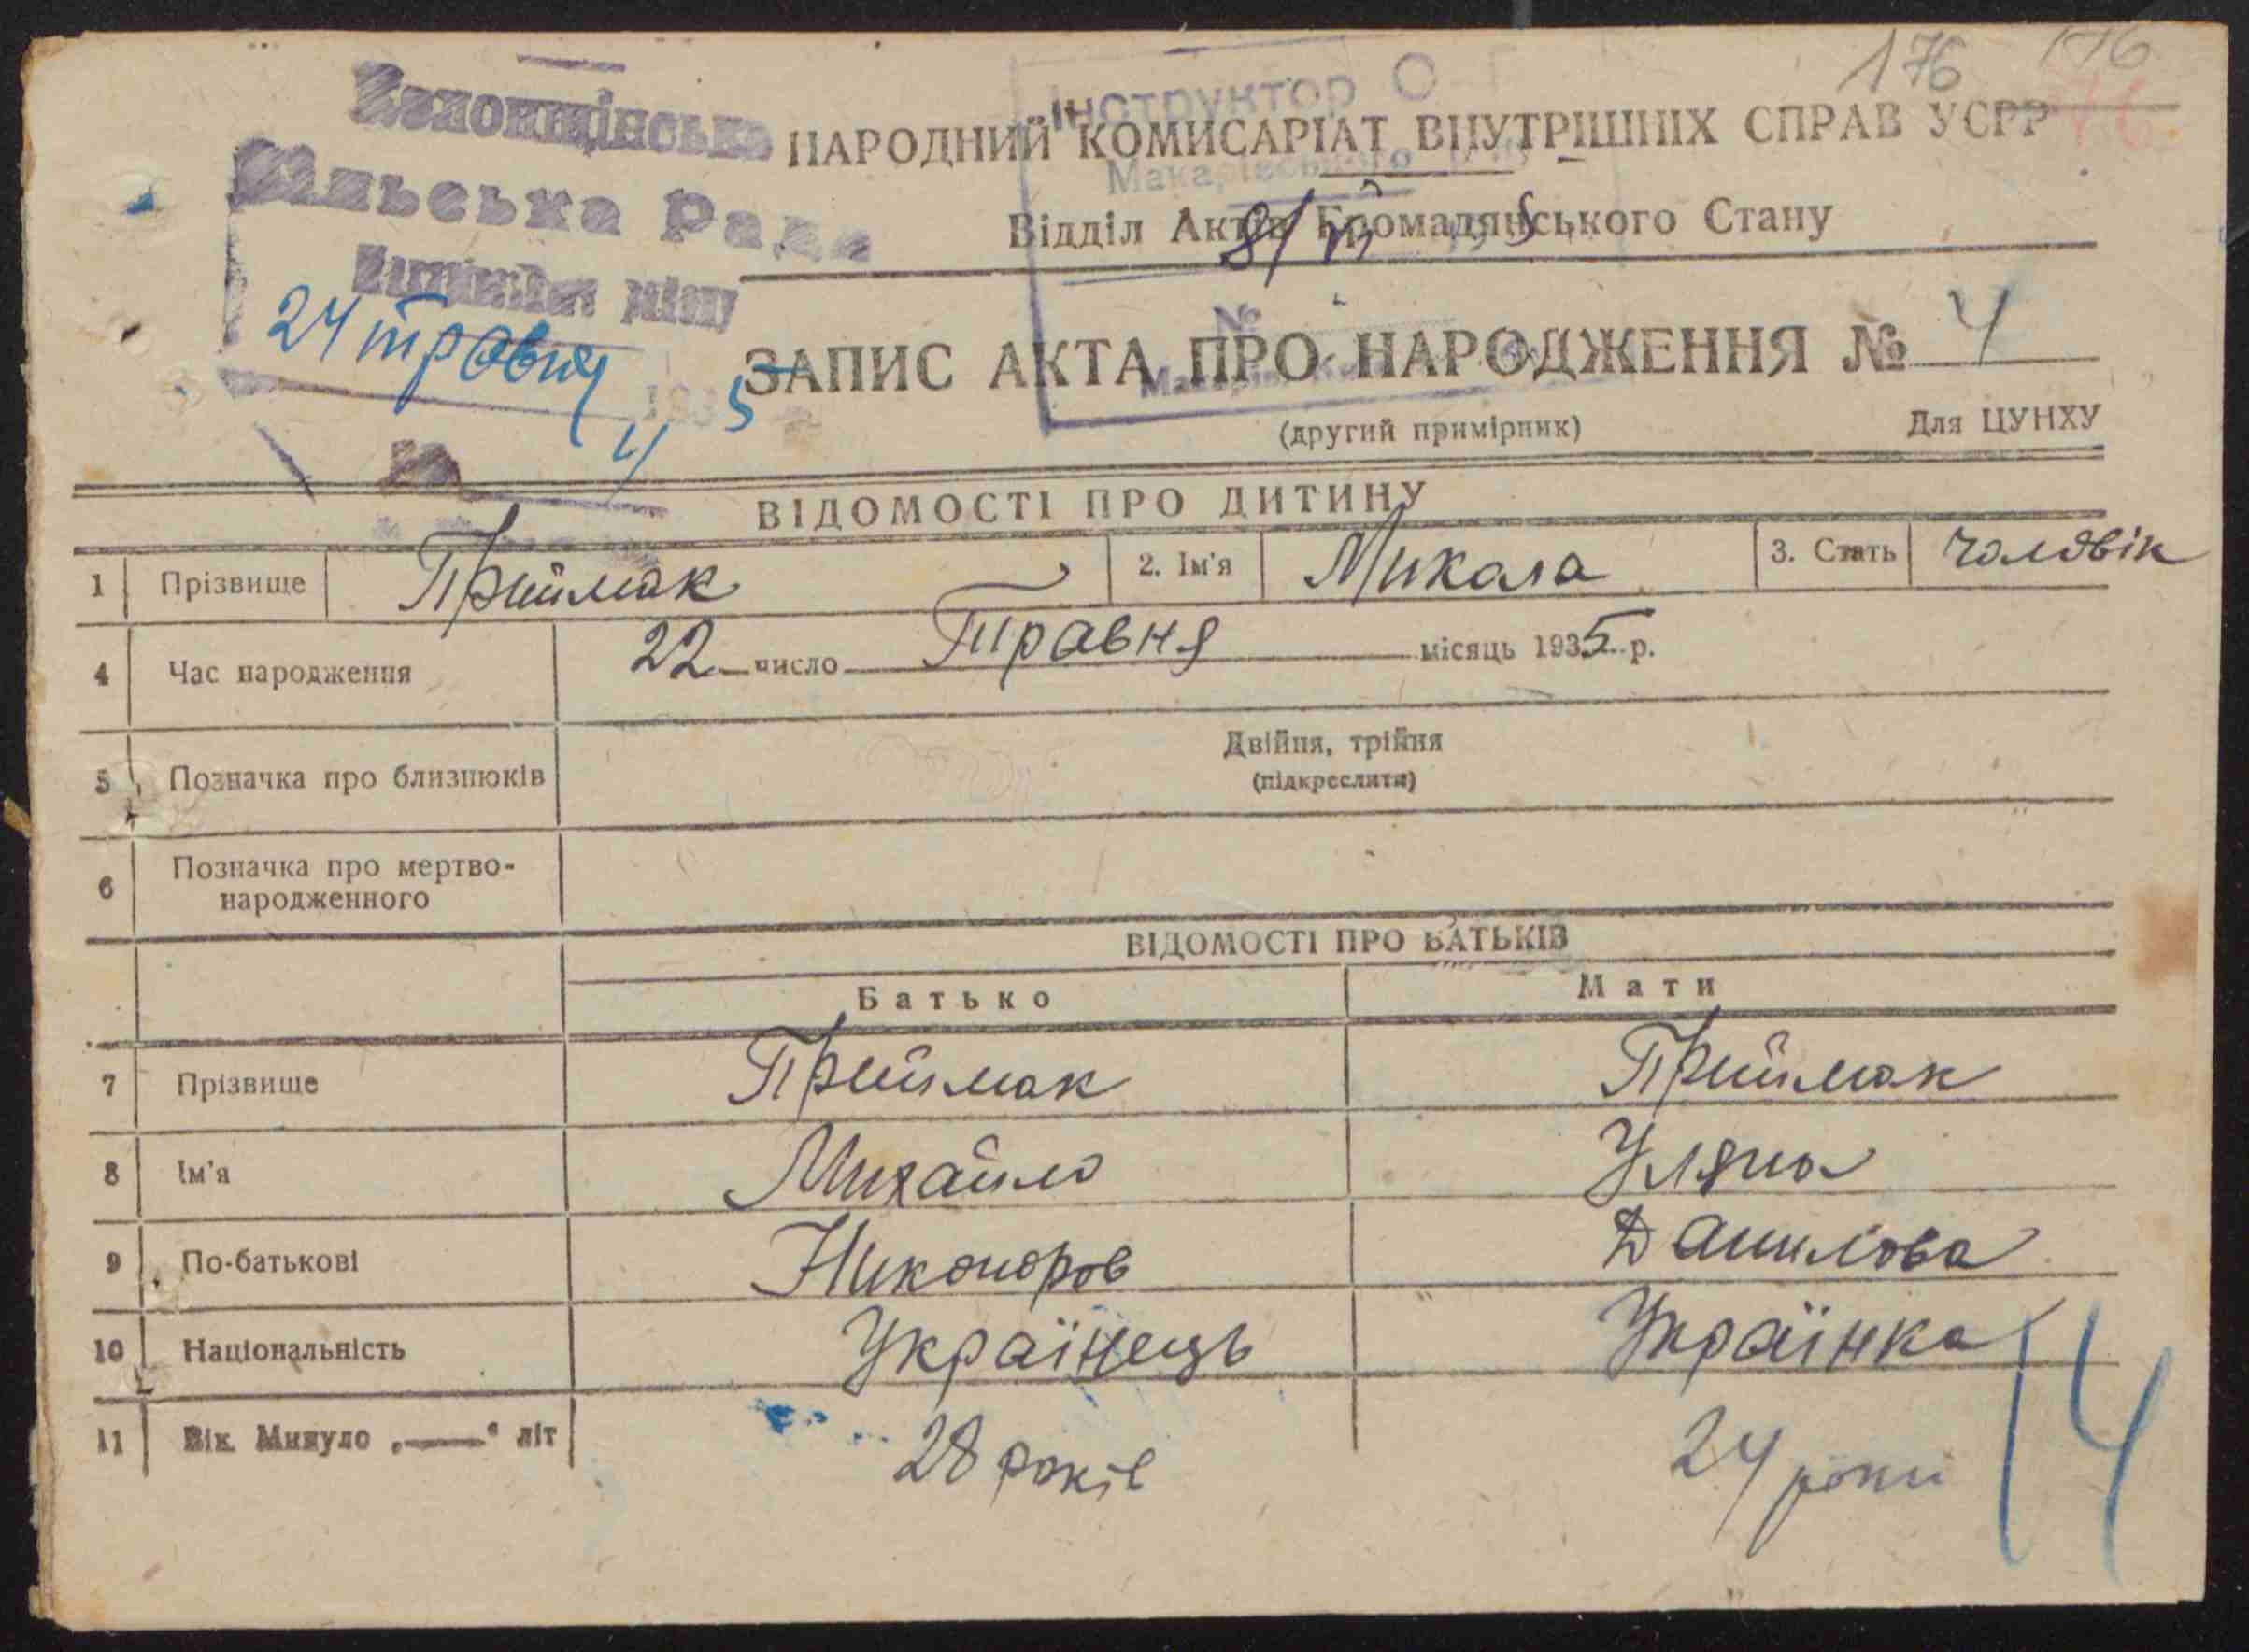 176 176
Сільська Рада
Інструктор О
НАРОДНИЙ КОМИСАРІАТ ВНУТРІШНІХ СПРАВ УСРР
Відділ Актів Громадянського Стану
8/VI 5
24 травня 1935
4
ЗАПИС АКТА ПРО НАРОДЖЕННЯ № 4
(другий примірник) Для ЦУНХУ
ВІДОМОСТІ ПРО ДИТИНУ
1 Прізвище Приймак 2. Ім'я Микола 3. Стать чоловік
4 Час народження 22 число Травня місяць 1935 р.
5 Позначка про близнюків Двійня, трійня
(підкреслити)
6 Позначка про мертво-
народженного
ВІДОМОСТІ ПРО БАТЬКІВ
Батько Мати
7 Прізвище Приймак Приймак
8 Ім'я Михайло Уляна
9 По-батькові Никоноров Данилова
10 Національність Українець Українка
11 Вік. Минуло „—" літ 28 років 24 роки
14